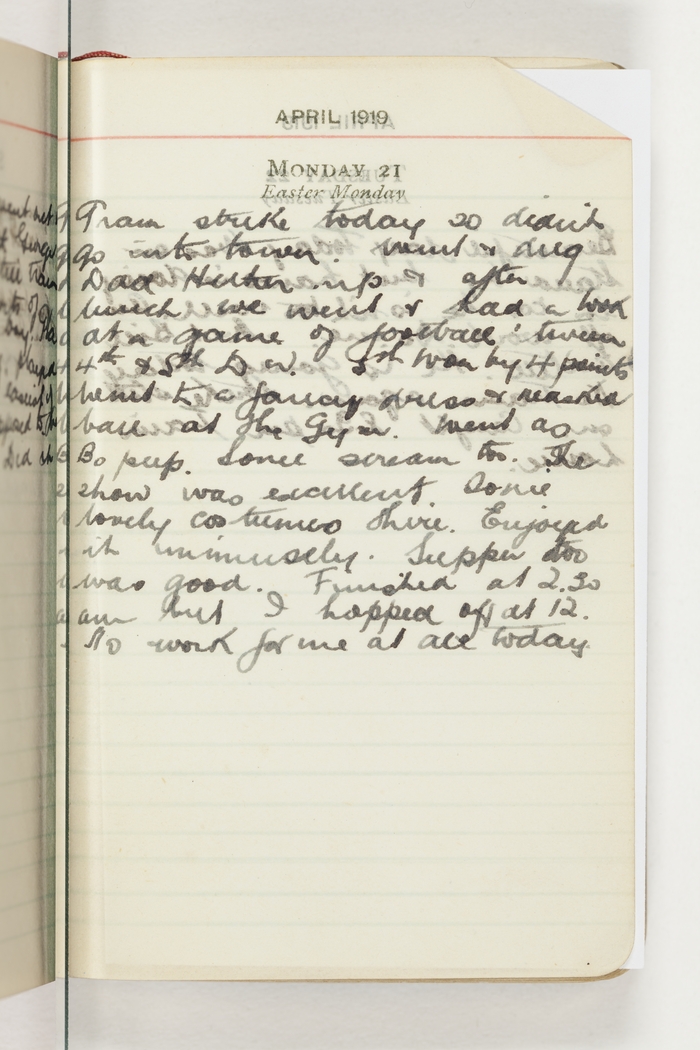 APRIL 1919
MONDAY 21
Easter Monday
Tram strike today so didn't
go into town. Went & dug
Dad Hutton up & after
lunch we went & had a look
at a game of football 'tween
4th & 5th Div. 5th won by 4 points
Went to a fancy dress & masked
ball at the Gym. Went as
Bo peep. Some scream too. The
show was excellent. Some
lovely costumes there. Enjoyed
it immensely. Supper too
was good. Finished at 2.30
am but I hopped off at 12.
No work for me at all today